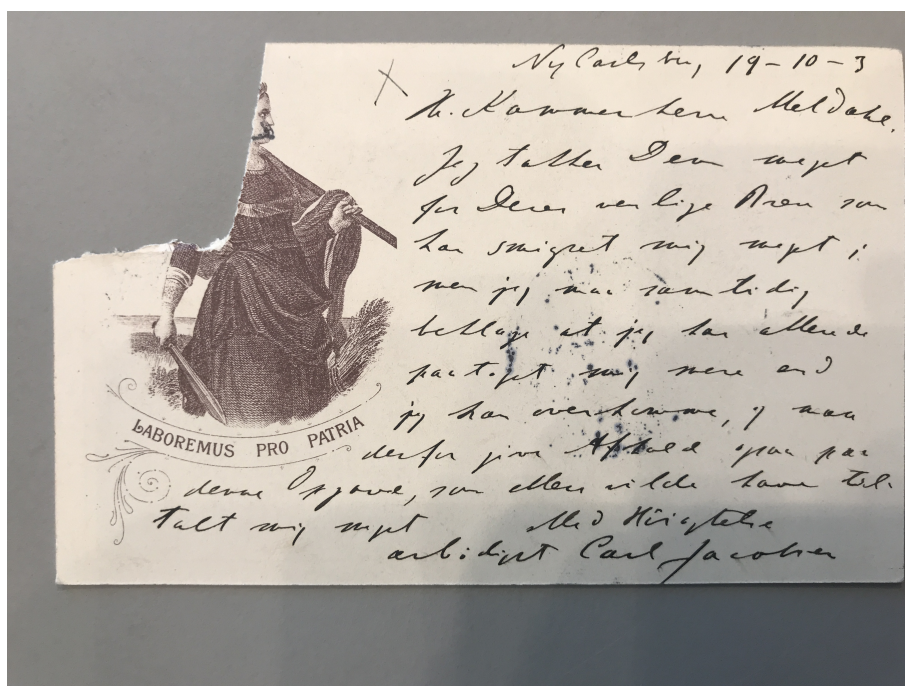 Ny Carlsberg, 19-10-3
Hr. Kammerherre Meldahl.
Jeg takker Dem meget
for Deres venlige Brev som
har smigret mig meget;
men jeg maa samtidig
beklage at jeg har allerede
paataget mig mere end
jeg kan overkomme, og maa
derfor give Afkald ogsaa paa
denne Opgave, som ellers vilde have til-
talt mig meget
Med Højagtelse
ærbødigst Carl Jacobsen
LABOREMUS PRO PATRIA